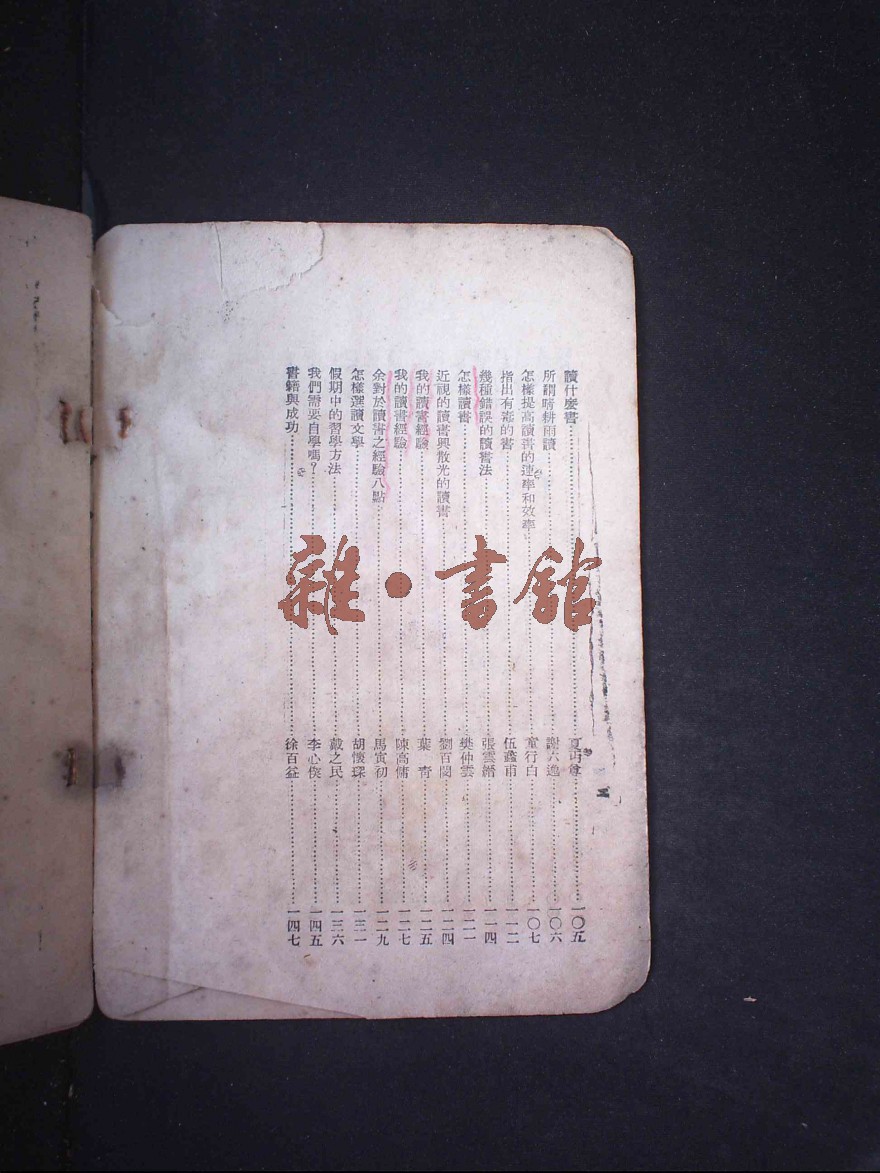 讀什麼書 夏丏尊 一〇五
所謂晴耕雨讀 謝六逸 一〇六
怎樣提高讀書的速率和效率 童行白 一〇七
指出有毒的書 伍蠡甫 一一二
幾種錯誤的讀書法 張雲縉 一一四
怎樣讀書 樊仲雲 一二一
近視的讀書與散光的讀書 劉百閔 一二四
我的讀書經驗 葉青 一二五
我的讀書經驗 陳高傭 一二七
余對於讀書之經驗八點 馬寅初 一二九
怎樣選讀文學 胡懷琛 一三一
假期中的習學方法 戴之民 一三六
我們需要自學嗎? 李心俠 一四五
書籍與成功 徐百益 一四七
雜·書館